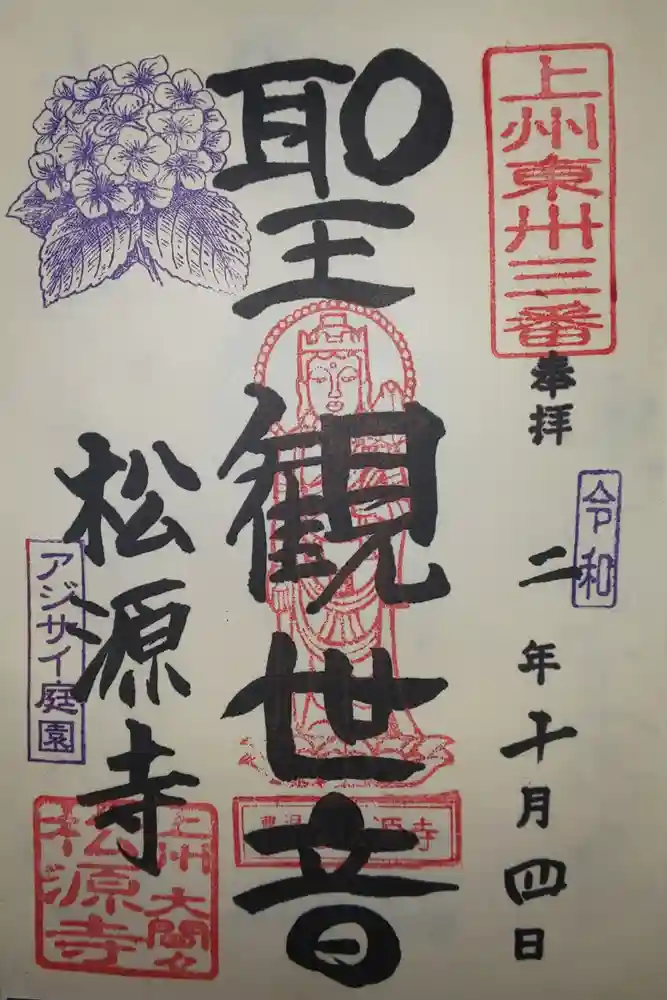 上州東卅三番
奉拝
令和
二年十月四日
聖観世音
源寺
松源寺
アジサイ庭園
上州大間々
松源寺